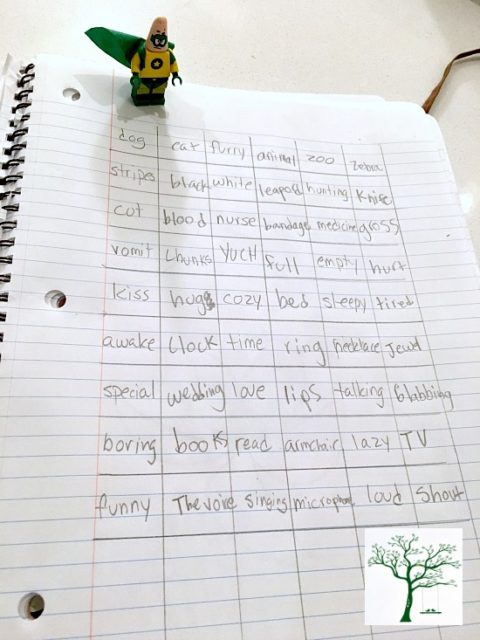 dog cat furry animal zoo zebra
stripes black white leapord hunting knife
cut blood nurse bandage medicine gross
vomit chunks YUCH full empty hurt
kiss hugs cozy bed sleepy tired
awake clock time ring necklace jewl
special wedding love lips talking blabbing
boring books read armchair lazy TV
funny The voice singing microphone loud shout